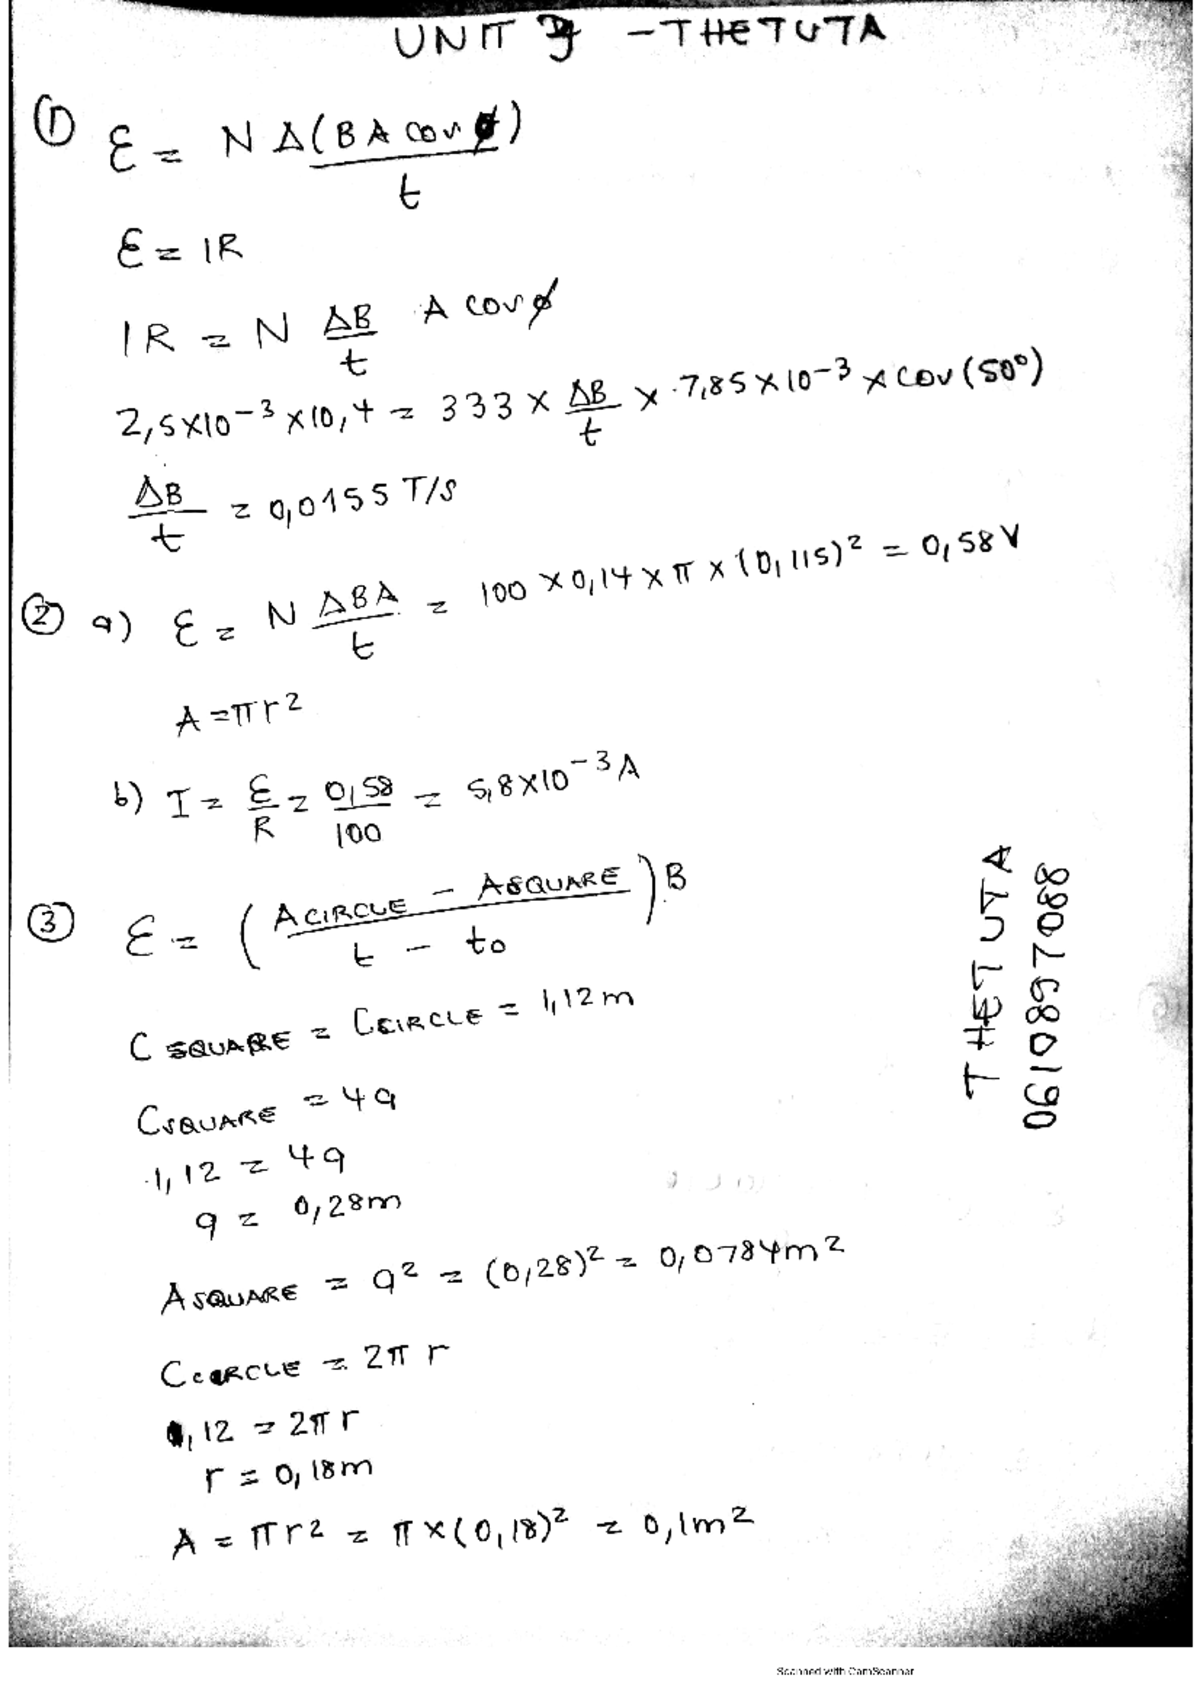 UNIT - THETUTA
① ε = N Δ(BA cos φ) / t
ε = IR
IR = N ΔB/t A cos φ
2,5×10⁻³ ×10,4 = 333 × ΔB/t × 7,85×10⁻³ × cos(50°)
ΔB/t = 0,0155 T/s
② a) ε = N ΔBA/t = 100 × 0,14 × π × (0,115)² = 0,58V
A = πr²
b) I = ε/R = 0,58/100 = 5,8×10⁻³ A
③ ε = (ACIRCLE - ASQUARE / t - t₀) B
C SQUARE = CCIRCLE = 1,12m
CSQUARE = 4a
1,12 = 4a
a = 0,28m
ASQUARE = a² = (0,28)² = 0,0784m²
CCIRCLE = 2π r
,12 = 2π r
r = 0,18m
A = πr² = π×(0,18)² = 0,1m²
THETUTA
0610897088
Scanned with CamScanner